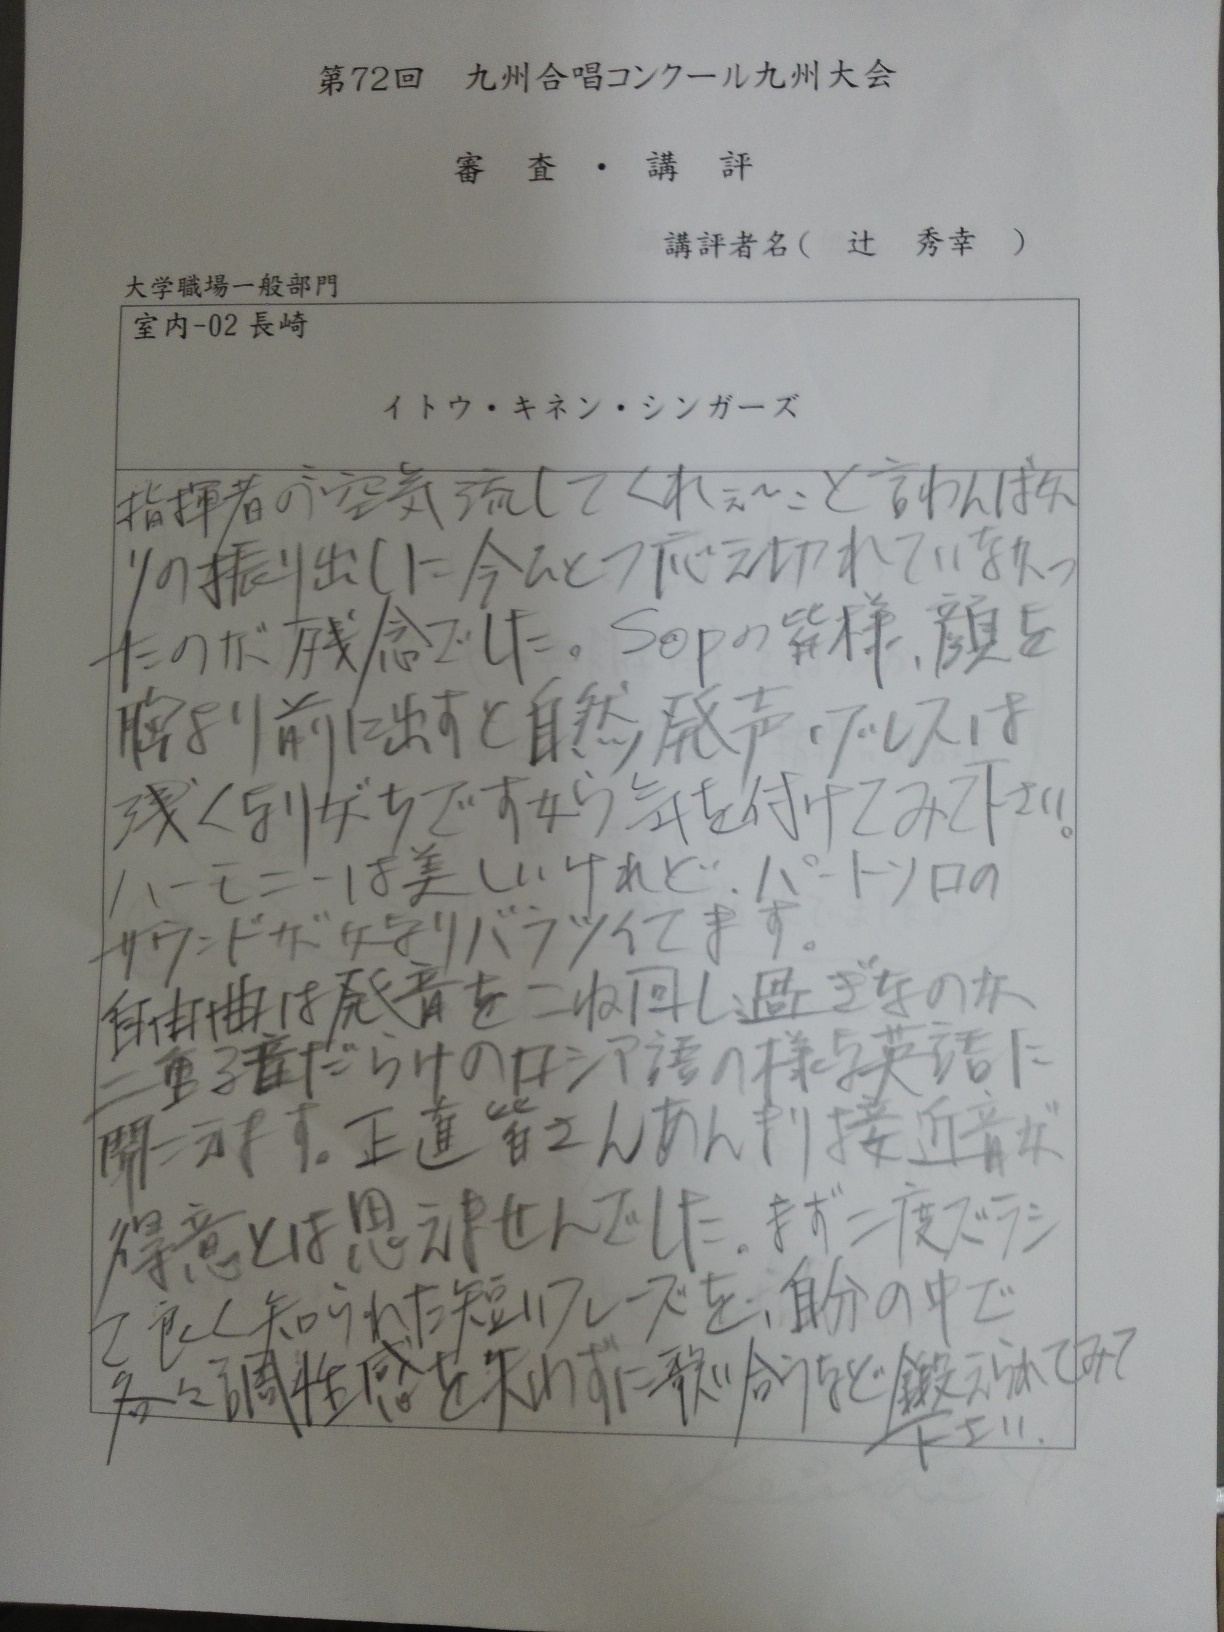 第72回 九州合唱コンクール九州大会
審査・講評
講評者名( 辻 秀幸 )
大学職場一般部門
室内-02 長崎
イトウ・キネン・シンガーズ
指揮者の"空気流してくれぇ〜"と言わんばか
りの振り出しに今ひとつ応え切れていなかっ
たのが残念でした。Sopの皆様、顔を
胸より前に出すと自然、発声・ブレスは
浅くなりがちですから気を付けてみて下さい。
ハーモニーは美しいけれど、パートソロの
サウンドがかなりバラツイてます。
自由曲は発音をこね回し過ぎなのか
二重子音だらけのロシア語の様な英語に
聞こえます。正直皆さんあんまり接近音が
得意とは思えませんでした。まず二度ズラシ
て良く知られた短いフレーズを、自分の中で
各々調性感を失わずに歌い合うなど鍛えられてみて
下さい.